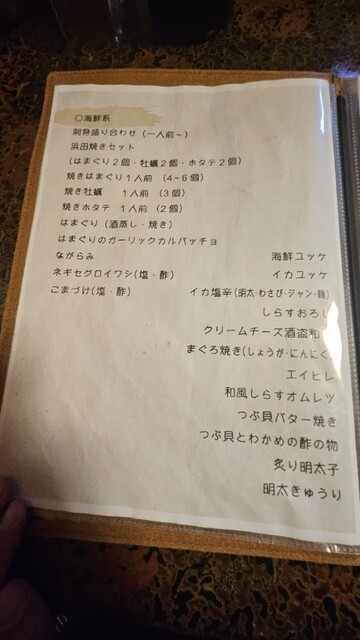 ○海鮮系
刺身盛り合わせ（一人前～）
浜田焼きセット
（はまぐり２個・牡蠣２個・ホタテ２個）
焼きはまぐり１人前（4～6個）
焼き牡蠣　１人前（３個）
焼きホタテ　１人前（２個）
はまぐり（酒蒸し・焼き）
はまぐりのガーリックカルパッチョ
ながらみ
ネギセグロイワシ（塩・酢）
ごまづけ（塩・酢）
海鮮ユッケ
イカユッケ
イカ塩辛（明太・わさび・ジャン・麹）
しらすおろし
クリームチーズ酒盗和
まぐろ焼き（しょうが・にんにく
エイヒレ
和風しらすオムレツ
つぶ貝バター焼き
つぶ貝とわかめの酢の物
炙り明太子
明太きゅうり